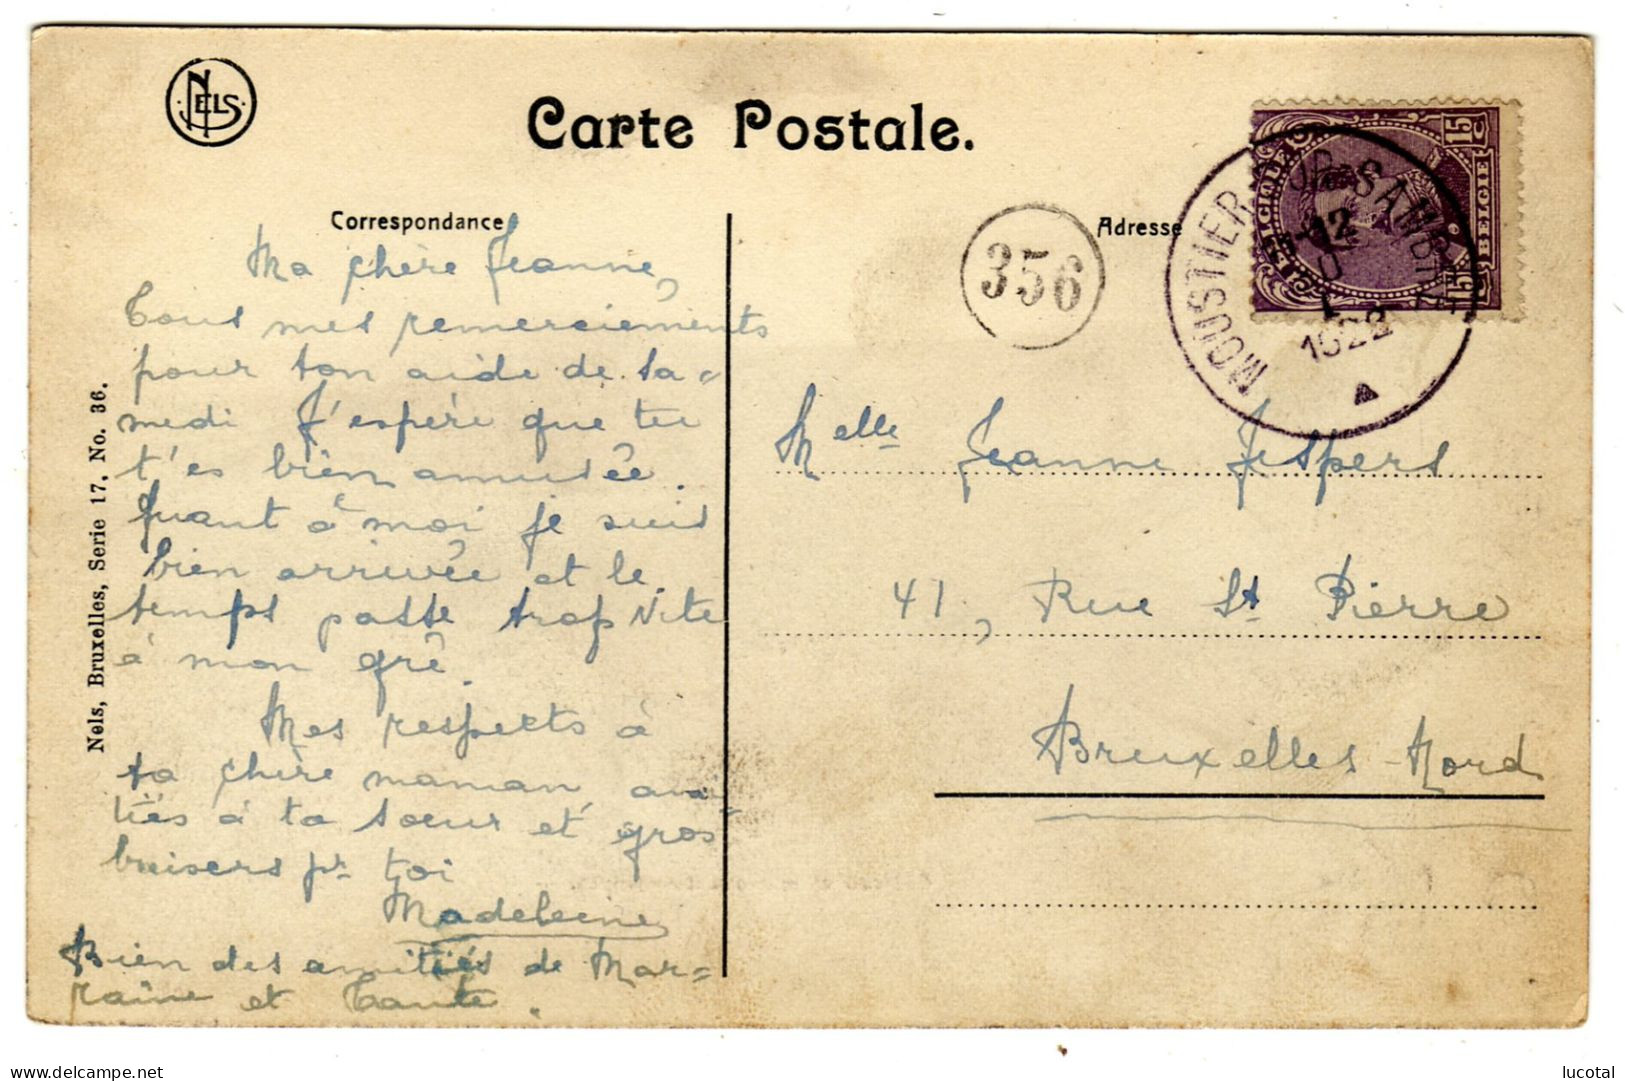 NELS
Carte Postale.
Correspondance
Adresse
356
MOUSTIER SUR SAMBRE
12
1922
BELGIQUE
BELGIE
15 C
15 C
Nels, Bruxelles, Serie 17, No. 36.
Ma chère Jeanne,
Tous mes remerciements
pour ton aide de sa=
medi J'espère que tu
t'es bien amusée.
Quant à moi je suis
bien arrivée et le
temps passe trop vite
à mon gré.
Mes respects à
ta chère maman ami
tiés à ta soeur et gros
baisers pr toi
Madeleine
Bien des amitiés de Mar=
raine et Tante.
Melle Jeanne Jespers
41, Rue St Pierre
Bruxelles-Nord
lucotal